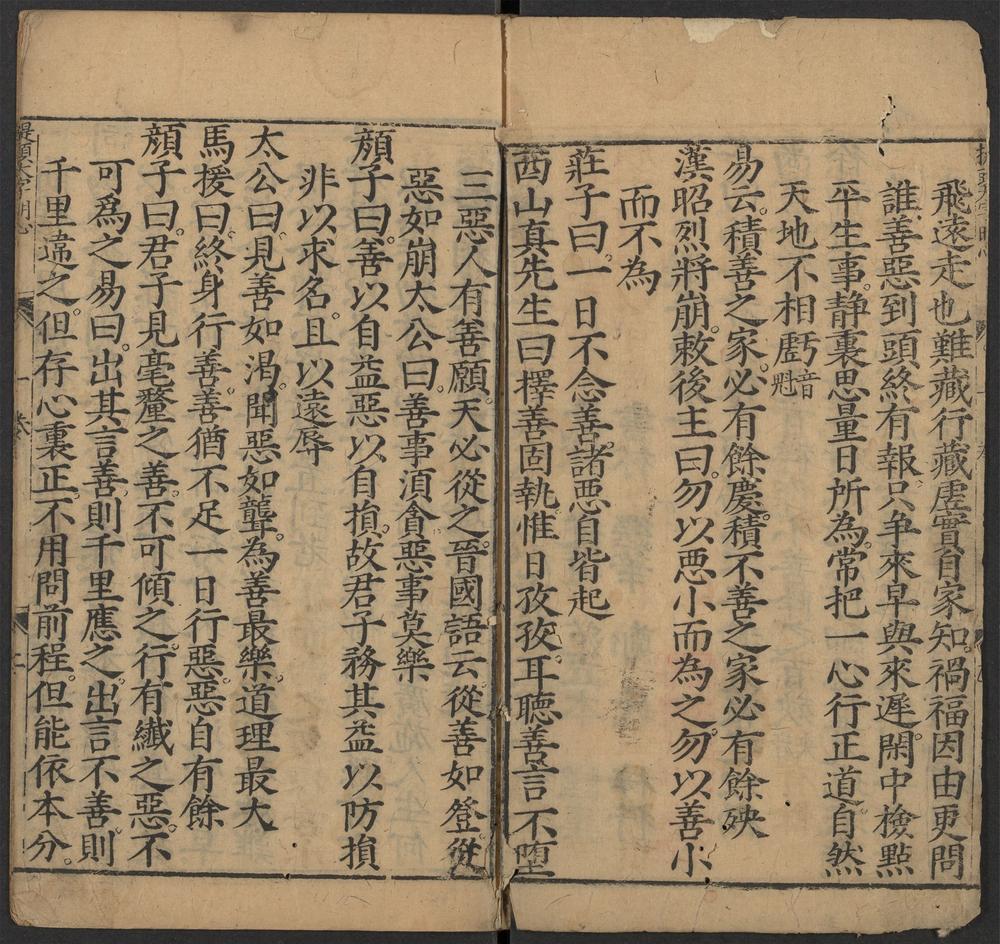 飛遠走也難藏行藏虛實自家知禍福因由更問
誰善惡到頭終有報只争來早與來遲閑中檢點
平生事静裏思量日所為常把一心行正道自然
天地不相虧音魁
易云積善之家必有餘慶積不善之家必有餘殃
漢昭烈將崩敕後主曰勿以惡小而為之勿以善小
而不為
莊子曰一日不念善諸惡自皆起
西山真先生曰擇善固執惟日孜孜耳聽善言不墮
三惡人有善願天必從之晉國語云從善如登從
惡如崩太公曰善事須貪惡事莫樂
顔子曰善以自益惡以自損故君子務其益以防損
非以求名且以遠辱
太公曰見善如渴聞惡如聾為善最樂道理最大
馬援曰終身行善善猶不足一日行惡惡自有餘
顔子曰君子見毫釐之善不可傾之行有纖之惡不
可爲之易曰出其言善則千里應之出言不善則
千里違之但存心裏正不用問前程但能依本分